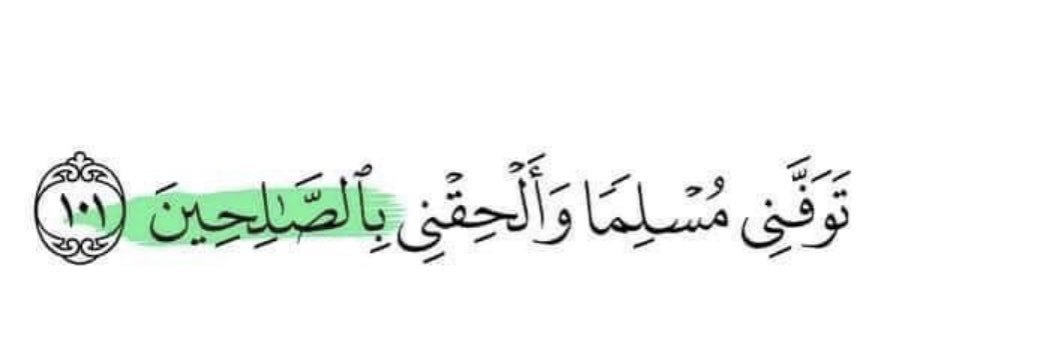 تَوَفَّنِى مُسۡلِمٗا وَأَلۡحِقۡنِى بِٱلصَّٰلِحِينَ ١٠١